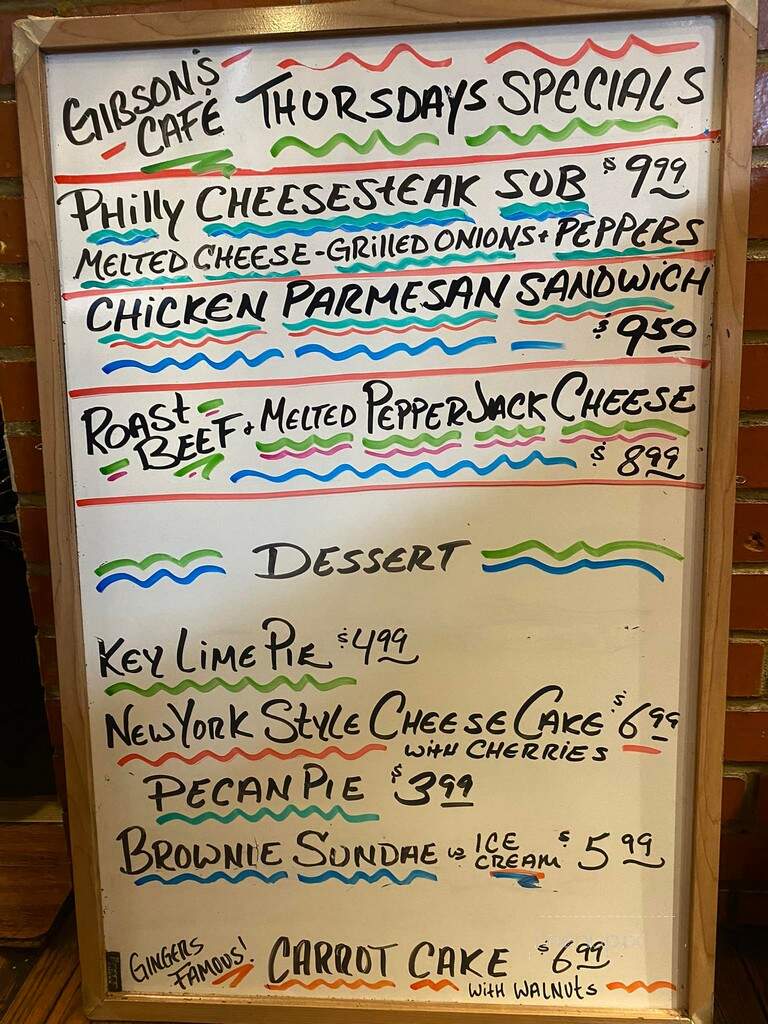 GIBSON'S CAFÉ THURSDAYS SPECIALS
PHilly CHEESESTEAK SUB $9.99
MELTED CHEESE - GRILLED ONIONS + PEPPERS
CHICKEN PARMESAN SANDWICH
$9.50
ROAST BEEF + MELTED PEPPER JACK CHEESE
$8.99
DESSERT
KEY LIME PIE $4.99
NEW YORK STYLE CHEESE CAKE $6.99
WITH CHERRIES
PECAN PIE $3.99
BROWNIE SUNDAE w ICE CREAM $5.99
GINGERS FAMOUS! CARROT CAKE $6.99
WITH WALNUTS